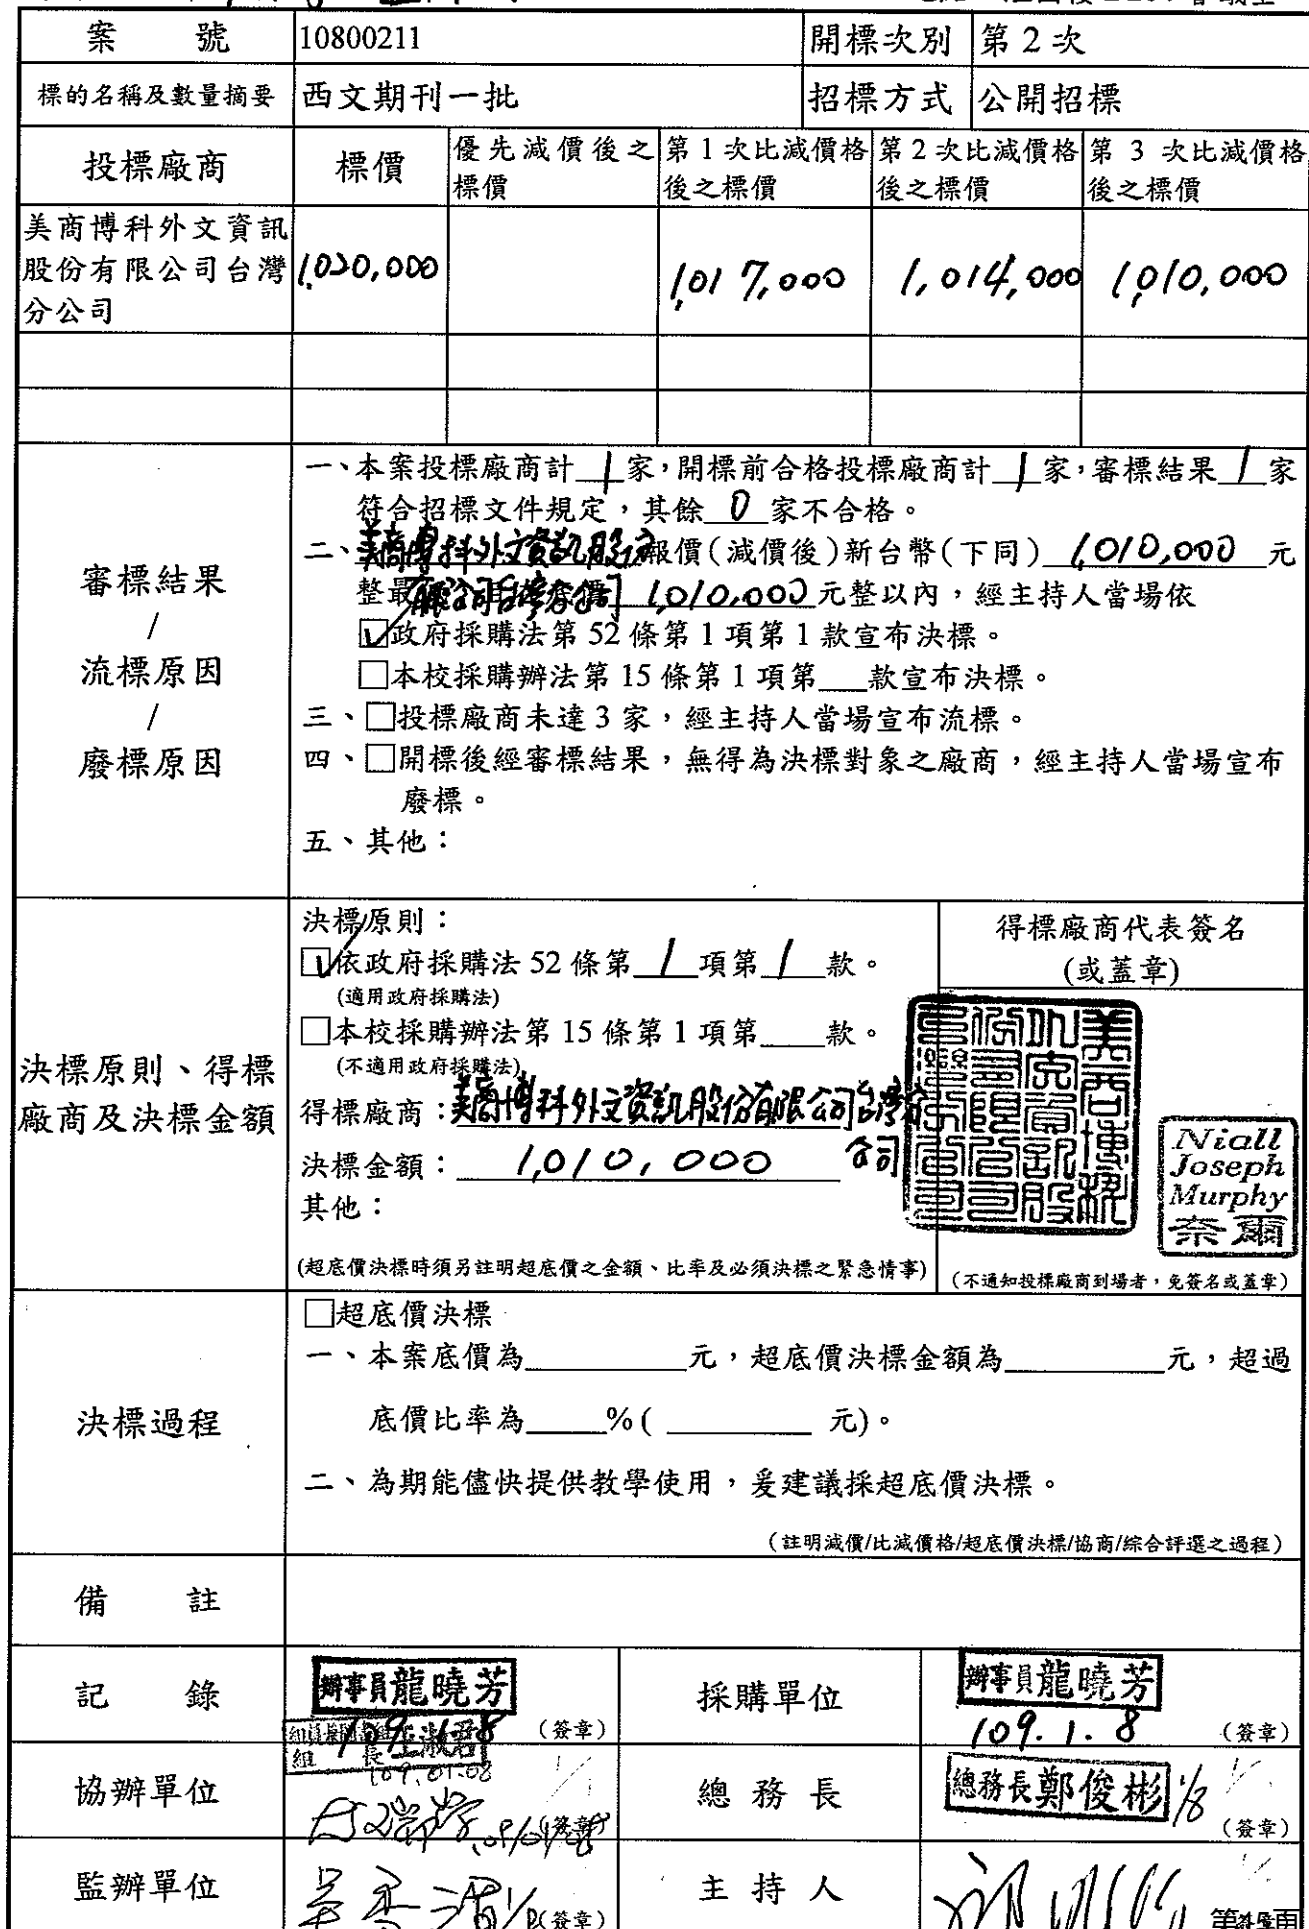 案 號 10800211 開標次別 第 2 次
標的名稱及數量摘要 西文期刊一批 招標方式 公開招標
投標廠商 標價 優先減價後之標價 第 1 次比減價格後之標價 第 2 次比減價格後之標價 第 3 次比減價格後之標價
美商博科外文資訊股份有限公司台灣分公司 1,020,000 1,017,000 1,014,000 1,010,000
審標結果
/
流標原因
/
廢標原因
一、本案投標廠商計 1 家,開標前合格投標廠商計 1 家,審標結果 1 家
符合招標文件規定,其餘 0 家不合格。
二、美商博科外文資訊股份有限公司台灣分公司報價(減價後)新台幣(下同) 1,010,000 元
整最 1,010,000 元整以內,經主持人當場依
☑政府採購法第 52 條第 1 項第 1 款宣布決標。
□本校採購辦法第 15 條第 1 項第___款宣布決標。
三、□投標廠商未達 3 家,經主持人當場宣布流標。
四、□開標後經審標結果,無得為決標對象之廠商,經主持人當場宣布
廢標。
五、其他:
決標原則、得標
廠商及決標金額
決標原則:
☑依政府採購法 52 條第 1 項第 1 款。
(適用政府採購法)
□本校採購辦法第 15 條第 1 項第____款。
(不適用政府採購法)
得標廠商:美商博科外文資訊股份有限公司台灣分
公司
決標金額: 1,010,000
其他:
(超底價決標時須另註明超底價之金額、比率及必須決標之緊急情事)
得標廠商代表簽名
(或蓋章)
Niall
Joseph
Murphy
奈爾
(不通知投標廠商到場者,免簽名或蓋章)
決標過程
□超底價決標
一、本案底價為__________元,超底價決標金額為__________元,超過
底價比率為_____%( _________ 元)。
二、為期能儘快提供教學使用,爰建議採超底價決標。
(註明減價/比減價格/超底價決標/協商/綜合評選之過程)
備 註
記 錄 辦事員龍曉芳 109.1.8 (簽章) 採購單位 辦事員龍曉芳 109.1.8 (簽章)
協辦單位 109.01.08 (簽章) 總務長 總務長鄭俊彬 1/8 (簽章)
監辦單位 (簽章) 主持人